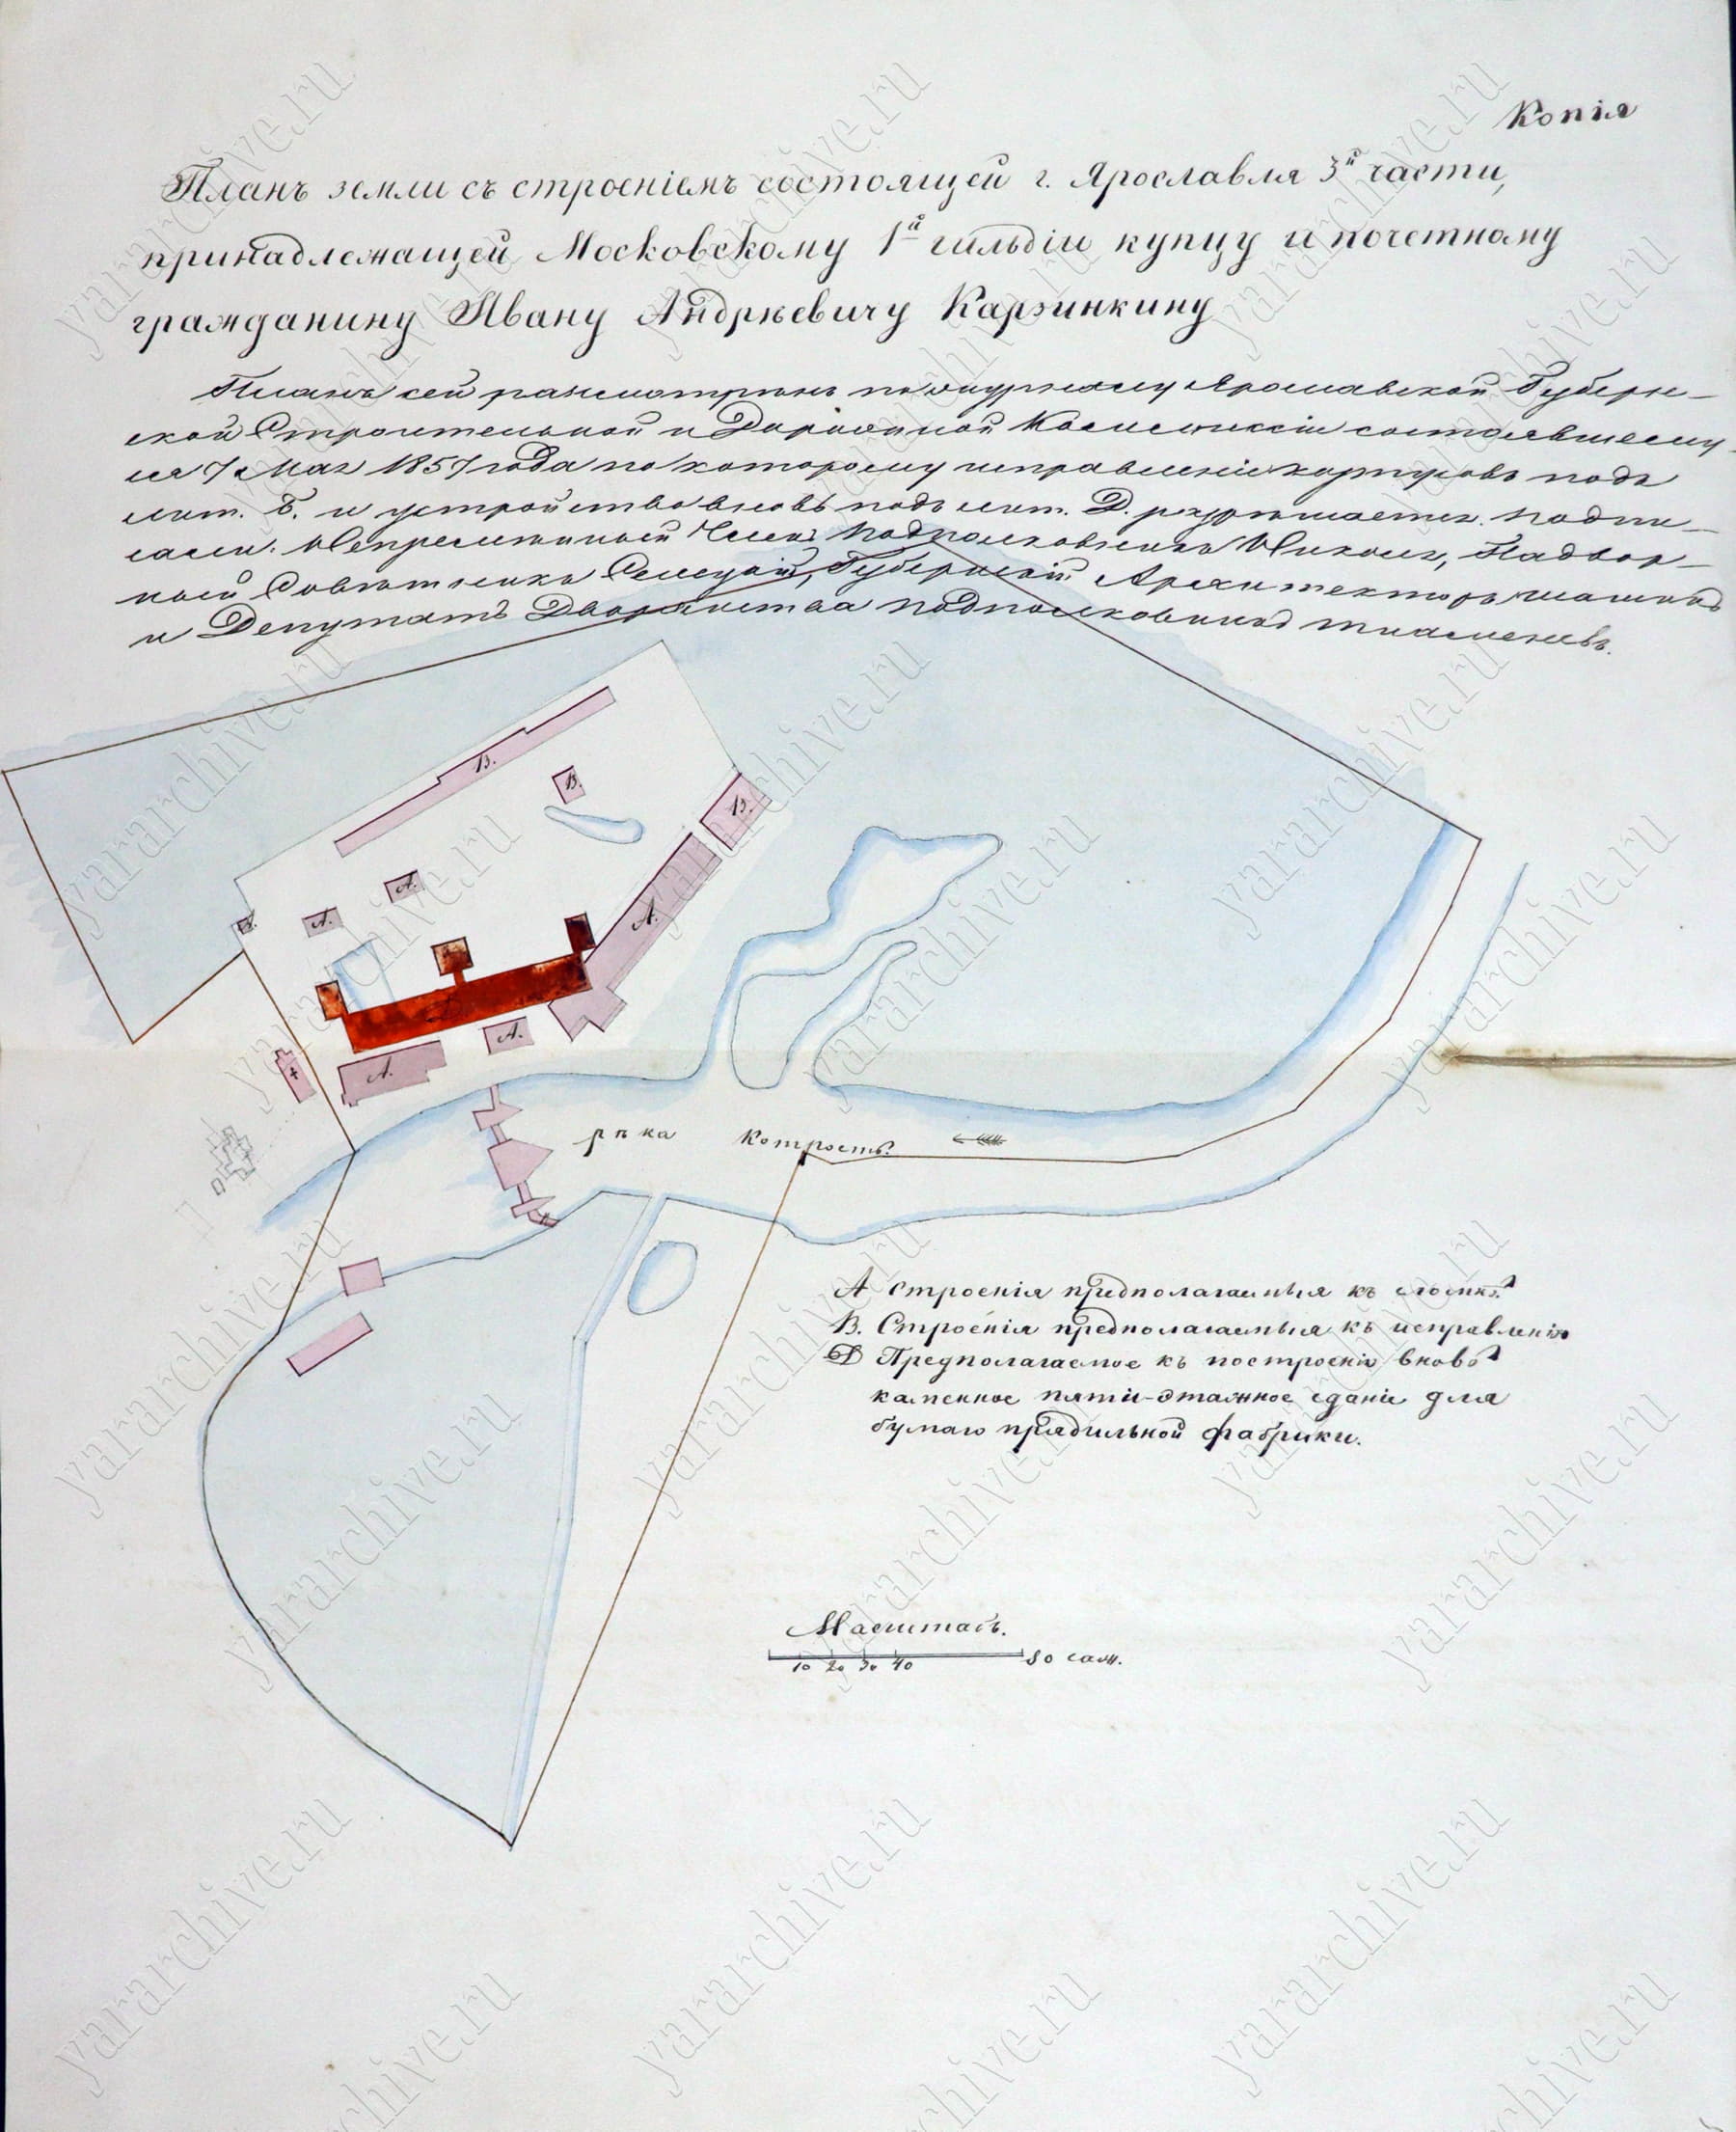 Копія
Планъ земли съ строеніемъ состоящей г. Ярославля 3й части,
принадлежащей Московскому 1й гильдіи купцу и почетному
гражданину Ивану Андрѣевичу Карзинкину
Планъ сей разсмотрѣнъ по журналу Ярославской Губерн-
ской Строительной и Дорожной Коммиссіи состоявшему-
ся 7 Мая 1857 года по которому исправленіе корпусовъ подъ
лит. Б. и устройство вновь подъ лит. Д. разрѣшается. Подпи-
сали: Непремѣнный Членъ Подполковникъ Надвор-
ный Совѣтникъ Губернскій Архитекторъ
и Депутатъ Дворянства подполковникъ
В.
В.
В.
А.
А.
В.
А.
Д
А.
А.
рѣка Котрость.
А Строенія предполагаемыя къ сломкѣ
В. Строенія предполагаемыя къ исправленію
Д Предполагаемое къ построенію вновь
каменное пяти-этажное зданіе для
бумаго прядильной фабрики.
Масштабъ.
10 20 30 40 80 саж.
yararchive.ru